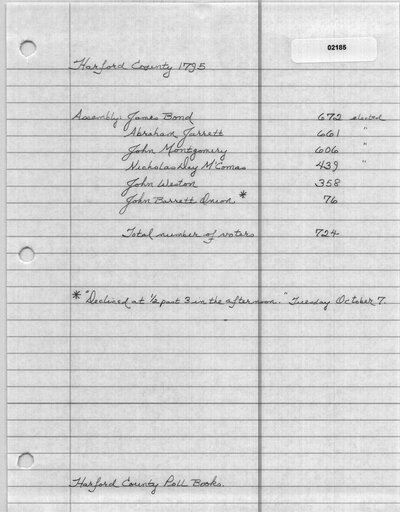 02185
Harford County 1795
Assembly: James Bond 672 elected
Abraham Jarrett 661 "
John Montgomery 606 "
Nicholas Day McComas 439 "
John Weston 358
John Barrett Onion * 76
Total number of voters 724
* "Declined at 1/2 past 3 in the afternoon." Tuesday October 7.
Harford County Poll Books.